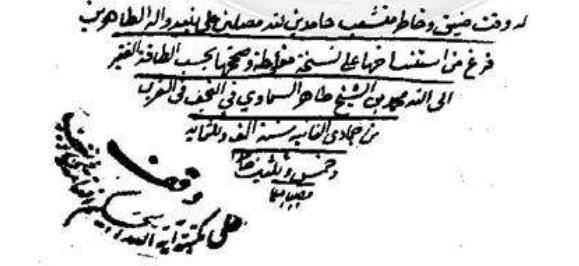 له وقت ضيق وخاطر منشعب حامدين لله مصلين على نبيه واله الطاهرين
فرغ من استنساخها على نسخة مغلوطة وصححها بحسب الطاقة الفقير
الى الله محمد بن الشيخ طاهر السماوي في النجف في الغري
من جمادى الثانيه سنة الف وثلثمايه
وخمس وثلثين
مصليا
وقف
على مكتبة آية الله الحكيم